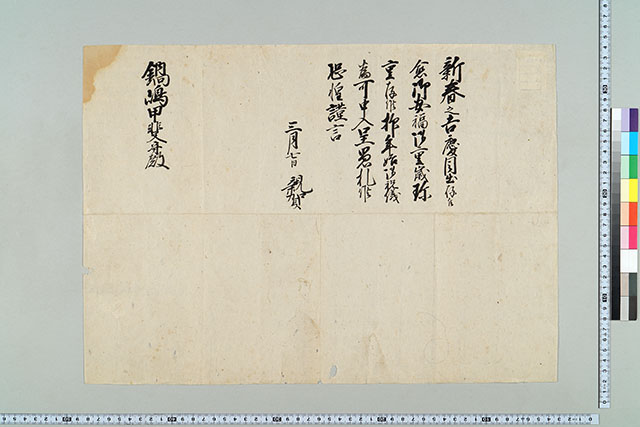 新春之吉慶目出存候
愈御安福御重歳珍
重存候抑年始御祝儀
為可申入呈愚札候
恐惶謹言
三月七日 親賀
鍋嶋甲斐守殿